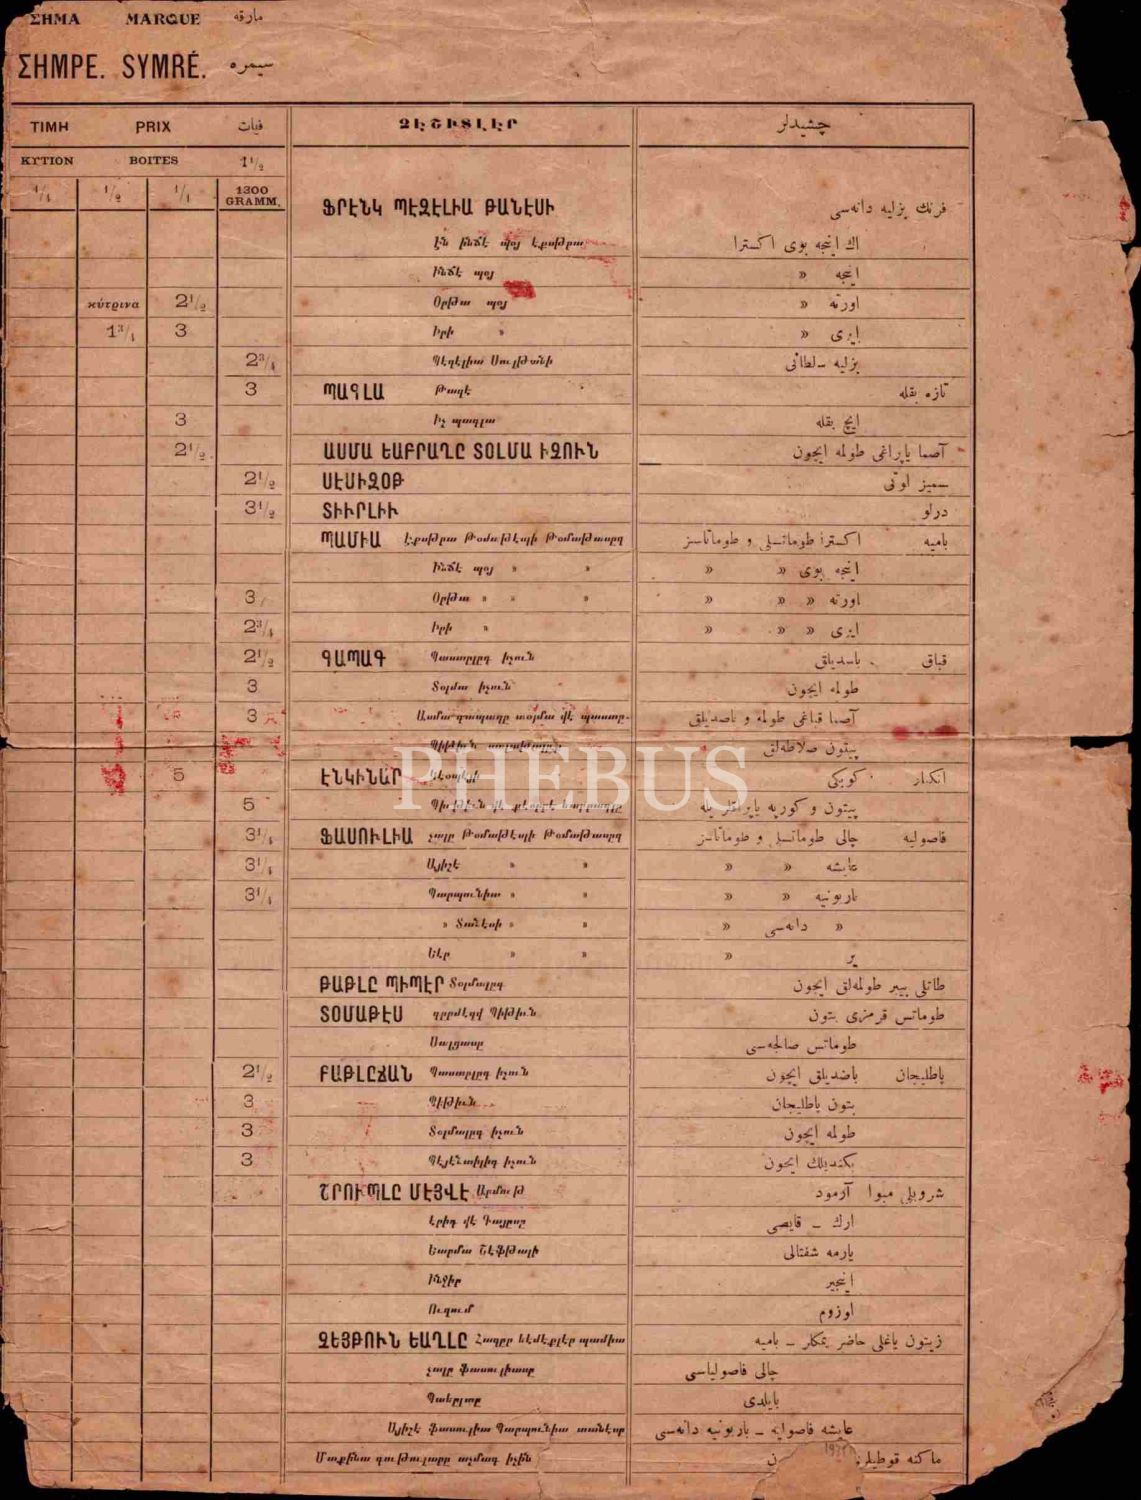 ΣΗΜΑ MARQUE مارقه
ΣΗΜΡΕ. SYMRÉ. سیمره
ΤΙΜΗ PRIX فیأت ՉԷՇԻՏԼԷՐ چشیدلر
ΚΥΤΙΟΝ BOITES 1 1/2
1/4 1/2 1/1 1300 GRAMM.
ՖՐԷՆԿ ՊԷԶԷԼԻԱ ԹԱՆԷՍԻ فرنك بزلیه دانه‌سی
Էն ինճէ պօյ էքսթրա اك اینجه بوی اكسترا
Ինճէ պօյ اینجه »
κύτρινα 2 1/2 Օրթա պօյ اورته »
1 3/4 3 Իրի » ایری »
2 3/4 Պէզէլիա Սուլթանի بزلیه سلطانی
3 ՊԱԳԼԱ Թազէ تازه بقله
3 Իչ պագլա ایچ بقله
2 1/2 ԱՍՄԱ ԵԱԲՐԱՂԸ ՏՕԼՄԱ ԻՉՈՒՆ آصما یاپراغی طولمه ایچون
2 1/2 ՍԷՄԻԶՕԹ سمیز اوتی
3 1/2 ՏԻՒՐԼԻՒ درلو
ՊԱՄԻԱ Էքսթրա Թօմաթէսլի Թօմաթսսըզ بامیه اكسترا طوماتسلی و طوماتسز
Ինճէ պօյ » » اینجه بوی » »
3 Օրթա » » » اورته » » »
2 3/4 Իրի » ایری » » »
2 1/2 ԳԱՊԱԳ Պաստըլըգ իչուն قباق باصدیلق
3 Տօլմա իչուն طولمه ایچون
3 Ասմա գապաղը տօլմա վէ պաստը. آصما قباغی طولمه و باصدیلق
پیتون صلاطه‌لق
5 ԷՆԿԻՆԱՐ انكنار كوبكی
5 پیتون و كورپه یاپراقلریله
3 1/4 ՖԱՍՈՒԼԻԱ չալը Թօմաթէսլի Թօմաթսսըզ فاصولیه چالی طوماتسلی و طوماتسز
3 1/4 Այիշէ » » عایشه » »
3 1/4 Պարպունիա » » باربونیه » »
» Տանէսի » » » دانه‌سی »
Եէր » » یر »
ԹԱԹԼԸ ՊԻՊԷՐ Տօլմալըգ طاتلی بیبر طولمه‌لق ایچون
ՏՕՄԱԹԷՍ գըրմըզը Պիթիւն طوماتس قرمزی بتون
Սալչասը طوماتس صالچه‌سی
2 1/2 ԲԱԹԼԸՃԱՆ Պաստըլըգ իչուն پاطلیجان باصدیلق ایچون
3 Պիթիւն بتون پاطلیجان
3 Տօլմալըգ իչուն طولمه ایچون
3 Պէյէնտիլիգ իչուն بكندیلك ایچون
ՇՐՈՒՊԼԸ ՄԷՅՎԷ Արմութ شروبلی میوا آرمود
Էրիգ վէ Գայըսը ارك ـ قایصی
Եարմա Շէֆթալի یارمه شفتالی
Ինջիր اینجیر
Ուզում اوزوم
ԶԷՅԹՈՒՆ ԵԱՂԼԸ Հազըր Եէմէքլէր պամիա زیتون یاغلی حاضر یمكلر ـ بامیه
չալը ֆասուլիասը چالی فاصولیاسی
بایلدی
Այիշէ ֆասուլիա Պարպունիա տանէսը عایشه فاصولیه ـ باربونیه دانه‌سی
Մաքինա գութուլարը աչմագ իչին ماكنه قوطیلر
PHEBUS